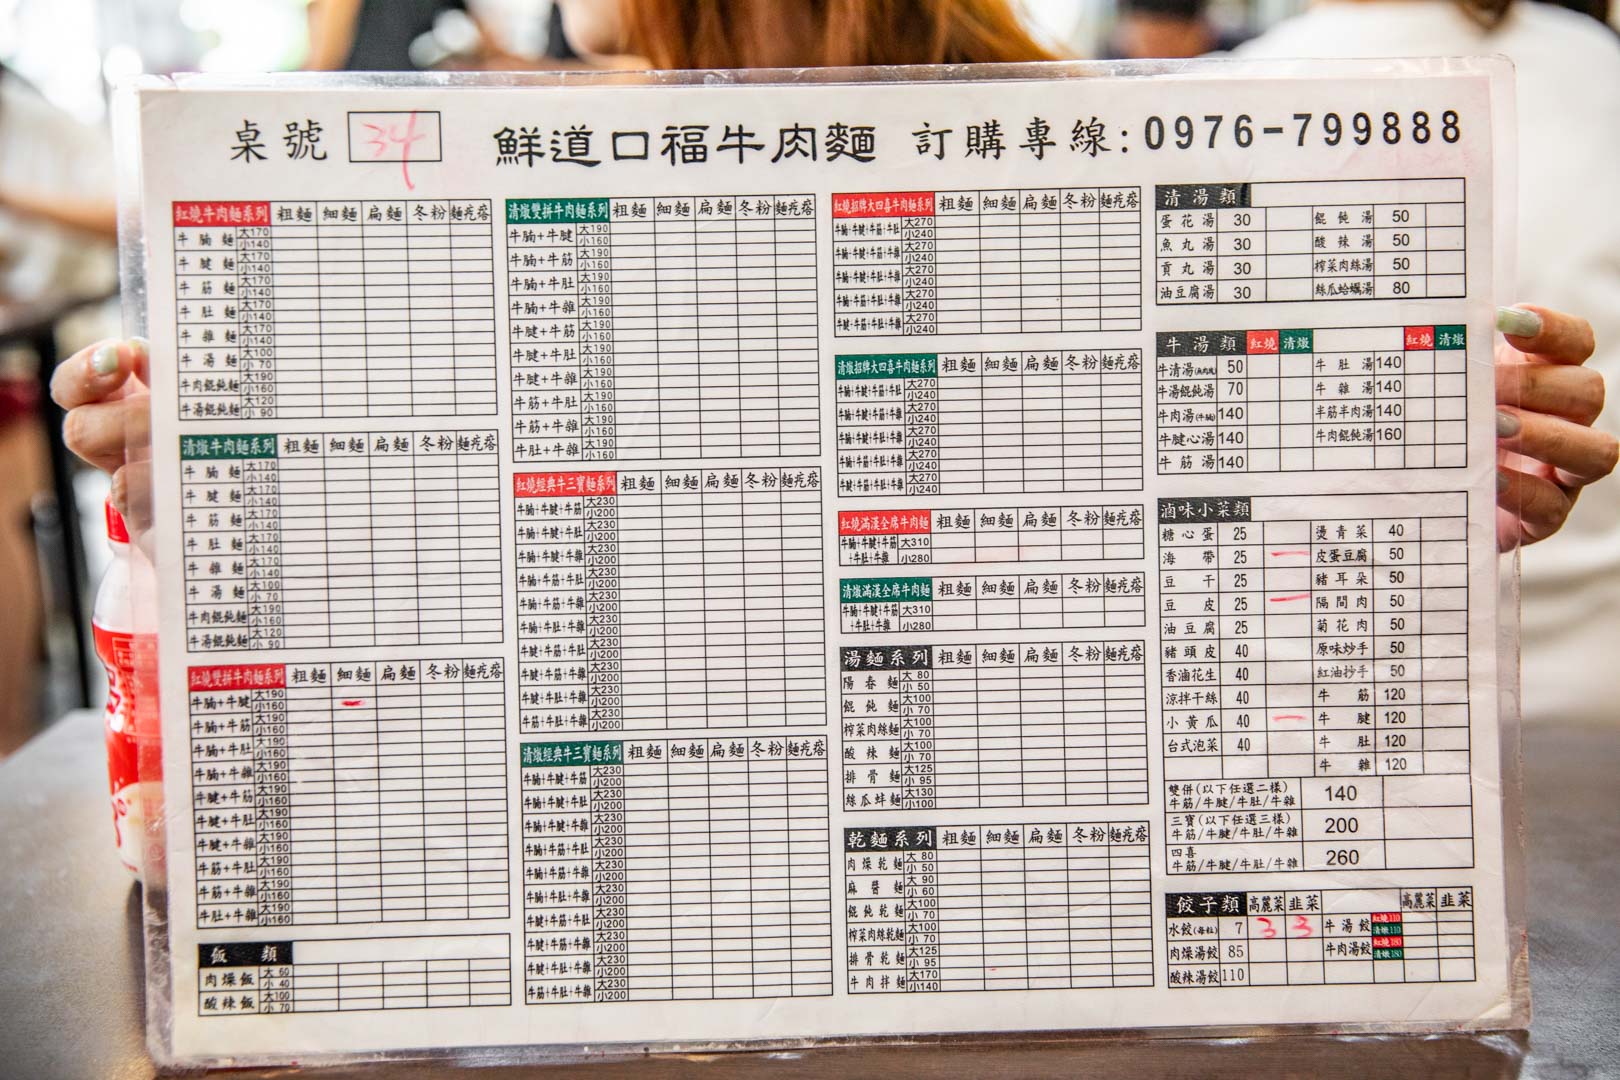 桌號 34 鮮道口福牛肉麵 訂購專線:0976-799888
紅燒牛肉麵系列 粗麵 細麵 扁麵 冬粉 麵疙瘩
牛腩麵 大170 小140
牛腱麵 大170 小140
牛筋麵 大170 小140
牛肚麵 大170 小140
牛雜麵 大170 小140
牛湯麵 大100 小70
牛肉餛飩麵 大190 小160
牛湯餛飩麵 大120 小90
清燉牛肉麵系列 粗麵 細麵 扁麵 冬粉 麵疙瘩
牛腩麵 大170 小140
牛腱麵 大170 小140
牛筋麵 大170 小140
牛肚麵 大170 小140
牛雜麵 大170 小140
牛湯麵 大100 小70
牛肉餛飩麵 大190 小160
牛湯餛飩麵 大120 小90
紅燒雙拼牛肉麵系列 粗麵 細麵 扁麵 冬粉 麵疙瘩
牛腩+牛腱 大190 小160
牛腩+牛筋 大190 小160
牛腩+牛肚 大190 小160
牛腩+牛雜 大190 小160
牛腱+牛筋 大190 小160
牛腱+牛肚 大190 小160
牛腱+牛雜 大190 小160
牛筋+牛肚 大190 小160
牛筋+牛雜 大190 小160
牛肚+牛雜 大190 小160
飯類
肉燥飯 大60 小40
酸辣飯 大100 小70
清燉雙拼牛肉麵系列 粗麵 細麵 扁麵 冬粉 麵疙瘩
牛腩+牛腱 大190 小160
牛腩+牛筋 大190 小160
牛腩+牛肚 大190 小160
牛腩+牛雜 大190 小160
牛腱+牛筋 大190 小160
牛腱+牛肚 大190 小160
牛腱+牛雜 大190 小160
牛筋+牛肚 大190 小160
牛筋+牛雜 大190 小160
牛肚+牛雜 大190 小160
紅燒經典牛三寶麵系列 粗麵 細麵 扁麵 冬粉 麵疙瘩
牛腩+牛腱+牛筋 大230 小200
牛腩+牛腱+牛肚 大230 小200
牛腩+牛腱+牛雜 大230 小200
牛腩+牛筋+牛肚 大230 小200
牛腩+牛筋+牛雜 大230 小200
牛腩+牛肚+牛雜 大230 小200
牛腱+牛筋+牛肚 大230 小200
牛腱+牛筋+牛雜 大230 小200
牛腱+牛肚+牛雜 大230 小200
牛筋+牛肚+牛雜 大230 小200
清燉經典牛三寶麵系列 粗麵 細麵 扁麵 冬粉 麵疙瘩
牛腩+牛腱+牛筋 大230 小200
牛腩+牛腱+牛肚 大230 小200
牛腩+牛腱+牛雜 大230 小200
牛腩+牛筋+牛肚 大230 小200
牛腩+牛筋+牛雜 大230 小200
牛腩+牛肚+牛雜 大230 小200
牛腱+牛筋+牛肚 大230 小200
牛腱+牛筋+牛雜 大230 小200
牛腱+牛肚+牛雜 大230 小200
牛筋+牛肚+牛雜 大230 小200
紅燒招牌大四喜牛肉麵系列 粗麵 細麵 扁麵 冬粉 麵疙瘩
牛腩+牛腱+牛筋+牛肚 大270 小240
牛腩+牛腱+牛筋+牛雜 大270 小240
牛腩+牛腱+牛肚+牛雜 大270 小240
牛腩+牛筋+牛肚+牛雜 大270 小240
牛腱+牛筋+牛肚+牛雜 大270 小240
清燉招牌大四喜牛肉麵系列 粗麵 細麵 扁麵 冬粉 麵疙瘩
牛腩+牛腱+牛筋+牛肚 大270 小240
牛腩+牛腱+牛筋+牛雜 大270 小240
牛腩+牛腱+牛肚+牛雜 大270 小240
牛腩+牛筋+牛肚+牛雜 大270 小240
牛腱+牛筋+牛肚+牛雜 大270 小240
紅燒滿漢全席牛肉麵 粗麵 細麵 扁麵 冬粉 麵疙瘩
牛腩+牛腱+牛筋 大310
+牛肚+牛雜 小280
清燉滿漢全席牛肉麵 粗麵 細麵 扁麵 冬粉 麵疙瘩
牛腩+牛腱+牛筋 大310
+牛肚+牛雜 小280
湯麵系列 粗麵 細麵 扁麵 冬粉 麵疙瘩
陽春麵 大80 小50
餛飩麵 大100 小70
榨菜肉絲麵 大100 小70
酸辣麵 大100 小70
排骨麵 大125 小95
絲瓜蚌麵 大130 小100
乾麵系列 粗麵 細麵 扁麵 冬粉 麵疙瘩
肉燥乾麵 大80 小50
麻醬麵 大90 小60
餛飩乾麵 大100 小70
榨菜肉絲乾麵 大100 小70
排骨乾麵 大125 小95
牛肉拌麵 大170 小140
清湯類
蛋花湯 30 餛飩湯 50
魚丸湯 30 酸辣湯 50
貢丸湯 30 榨菜肉絲湯 50
油豆腐湯 30 絲瓜蛤蠣湯 80
牛湯類 紅燒 清燉 紅燒 清燉
牛清湯(無肉塊) 50 牛肚湯 140
牛湯餛飩湯 70 牛雜湯 140
牛肉湯(牛腩) 140 半筋半肉湯 140
牛腱心湯 140 牛肉餛飩湯 160
牛筋湯 140
滷味小菜類
糖心蛋 25 燙青菜 40
海帶 25 皮蛋豆腐 50
豆干 25 豬耳朵 50
豆皮 25 隔間肉 50
油豆腐 25 菊花肉 50
豬頭皮 40 原味炒手 50
香滷花生 40 紅油抄手 50
涼拌干絲 40 牛筋 120
小黃瓜 40 牛腱 120
台式泡菜 40 牛肚 120
牛雜 120
雙併(以下任選二樣)
牛筋/牛腱/牛肚/牛雜 140
三寶(以下任選三樣)
牛筋/牛腱/牛肚/牛雜 200
四喜
牛筋/牛腱/牛肚/牛雜 260
餃子類 高麗菜 韭菜 高麗菜 韭菜
水餃(每粒) 7 3 3 牛湯餃 紅燒110 清燉110
肉燥湯餃 85 牛肉湯餃 紅燒180 清燉180
酸辣湯餃 110